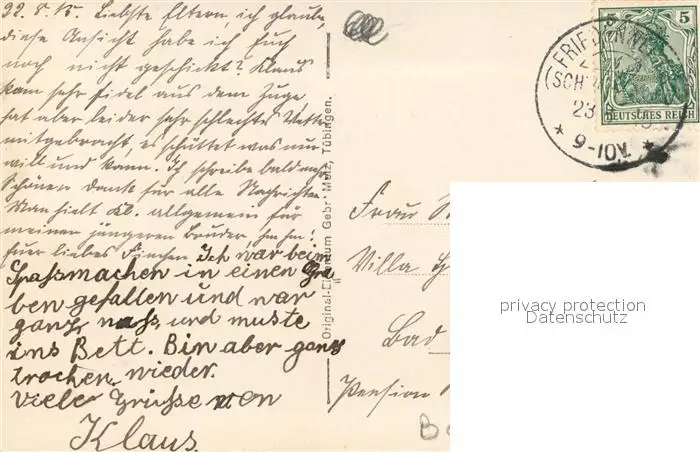 22.8.15. Liebste Eltern ich glaube,
diese Ansicht habe ich Euch
noch nicht geschickt? Klaus
kam sehr fidel aus dem Zuge
hat aber leider sehr schlechtes Wetter
mitgebracht, es schüttet was nur
will und kann. Ich schreibe bald mehr
Schönen Dank für alle Nachrichten.
Man hielt Kl. allgemein für
meinen jüngeren Bruder hm hm!
Euer liebes Finchen Ich war beim
Spassmachen in einen Gra
ben gefallen und war
ganz nass, und muste
ins Bett. Bin aber ganz
trochen wieder.
Viele Grüsse von
Klaus.
Original-Eigentum Gebr. Metz, Tübingen.
5 5
DEUTSCHES REICH
23
* 9-10V. *
Frau
Villa
Bad
Pension
privacy protection
Datenschutz